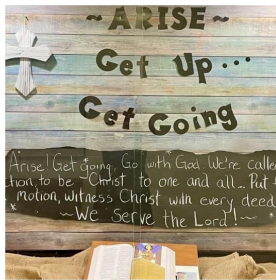 ~ARISE~
Get Up...
Get Going
Arise! Get going, Go with God. We're calle
ction, to be Christ to one and all... Put
motion, witness Christ with every deed
~We serve the Lord!~